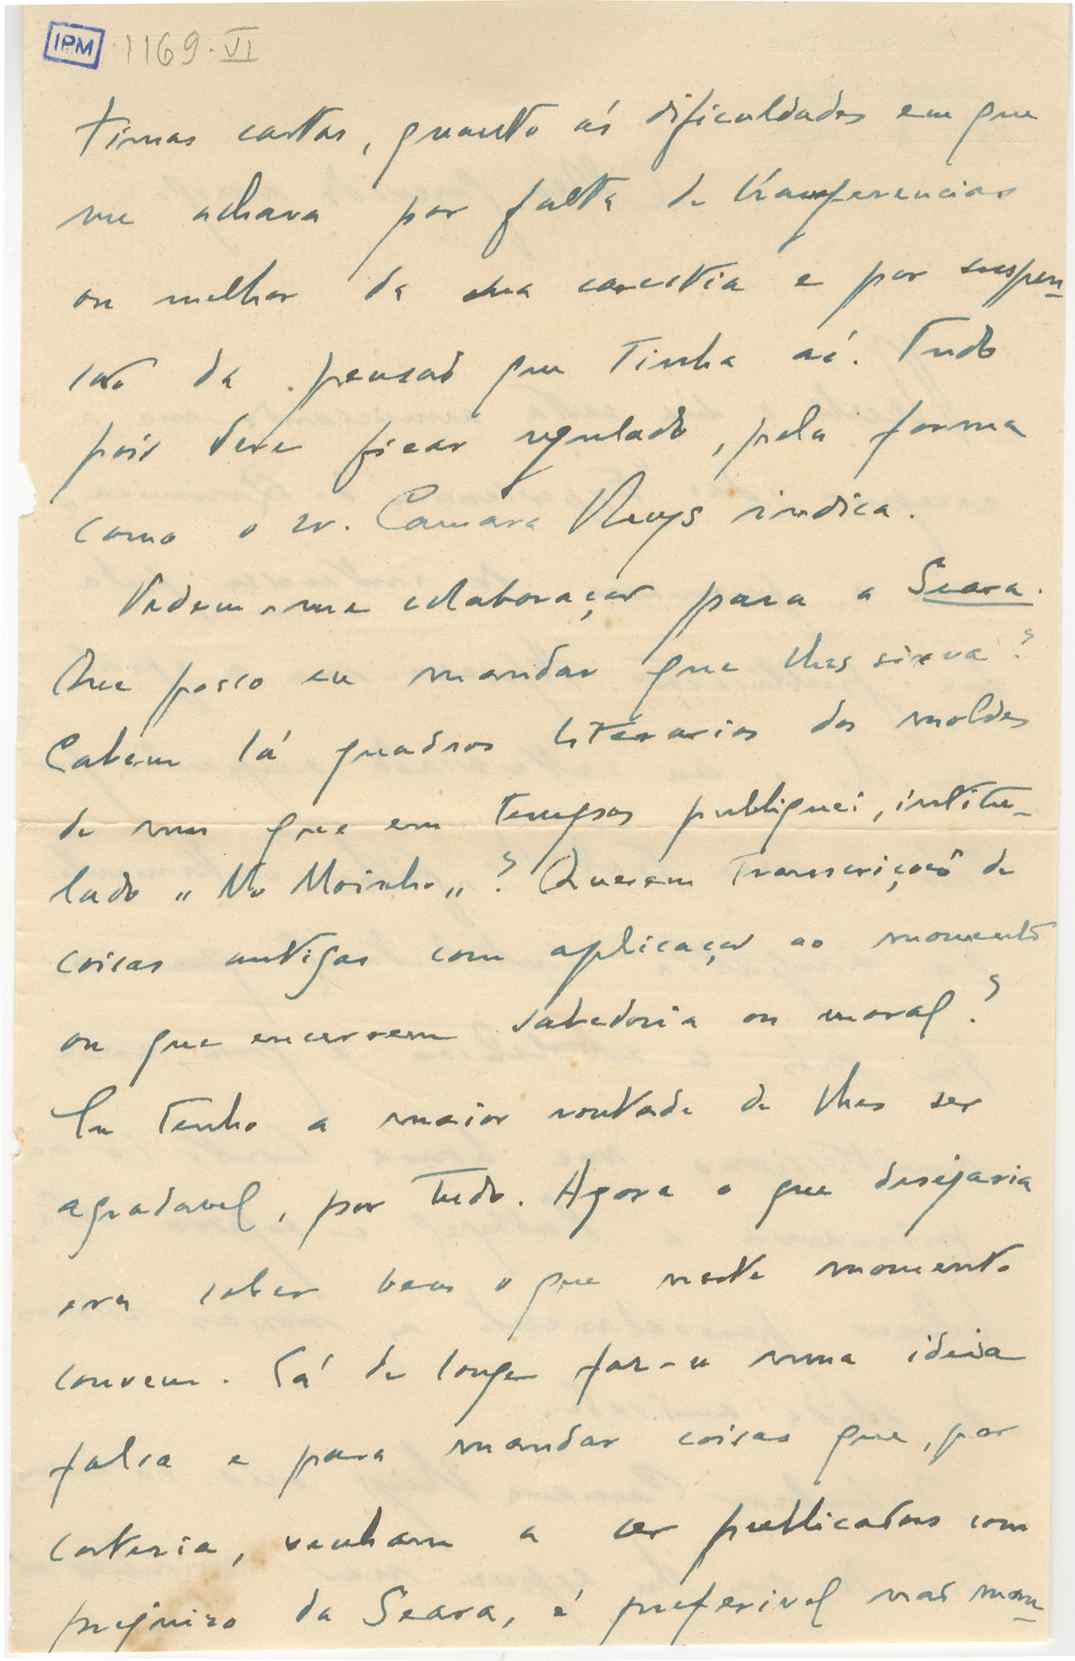 IPM 1169-VI
timas cartas, quanto ás dificuldades em que
me achava por falta de transferencias
ou melhor da sua carestia e por suspen-
são da pensão que tinha aí. Tudo
pois deve ficar regulado, pela forma
como o sr. Camara Reys indica.
Pedem-me colaboração para a Seara.
Que posso eu mandar que lhes sirva?
Cabem lá quadros literarios dos moldes
de um que em tempos publiquei, intitu-
lado "No Moinho"? Querem transcrições de
coisas antigas com aplicação ao momento
ou que encerrem sabedoria ou moral?
Eu tenho a maior vontade de lhes ser
agradavel, por tudo. Agora o que desejaria
era saber bem o que neste momento
convem. Cá de longe faz-se uma ideia
falsa e para mandar coisas que, por
cortezia, venham a ser publicadas com
prejuizo da Seara, é preferivel não man-